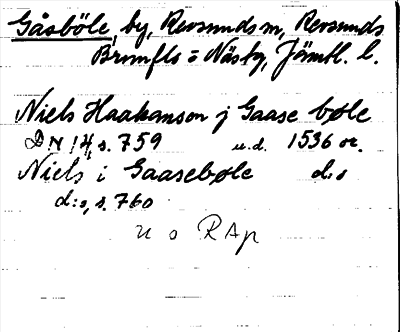 Gåsböle, by, Revsunds sn, Revsunds
Brunflo o Näsby, Jämtl. l.
Niels Haakanson j Gaase bøle
DN 14, s. 759 u.d. 1536 or.
Niels i Gaasebøle d:o
d:o, s. 760
u o RAp